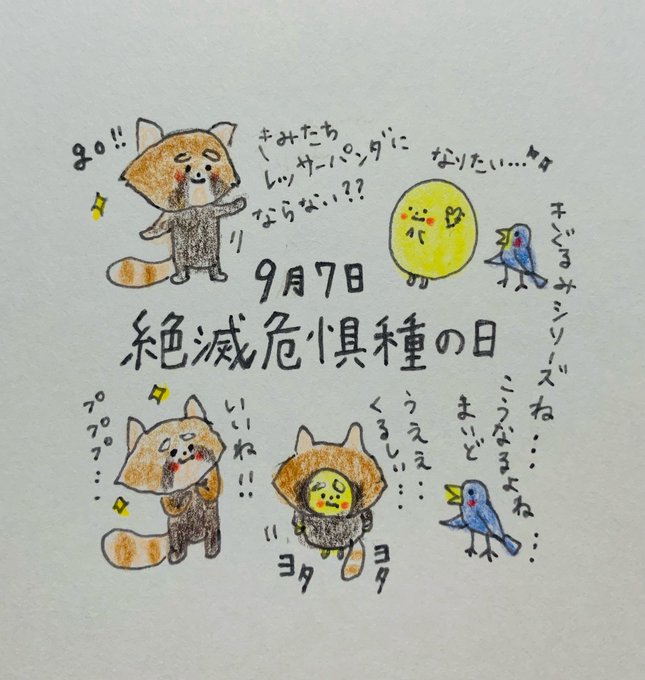 go!!
きみたち
レッサーパンダに
ならない??
なりたい…
きぐるみシリーズね…
9月7日
絶滅危惧種の日
プププ…
いいね!!
うええ…
くるしい…
ヨタ
ヨタ
まいど
こうなるよね…